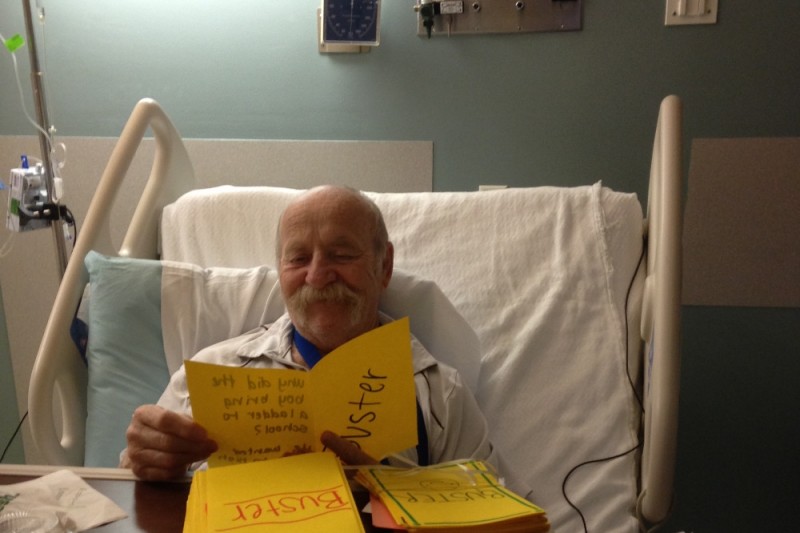 why did the
boy bring
a ladder to
school?
he wanted
Buster
Buster
BUSTER